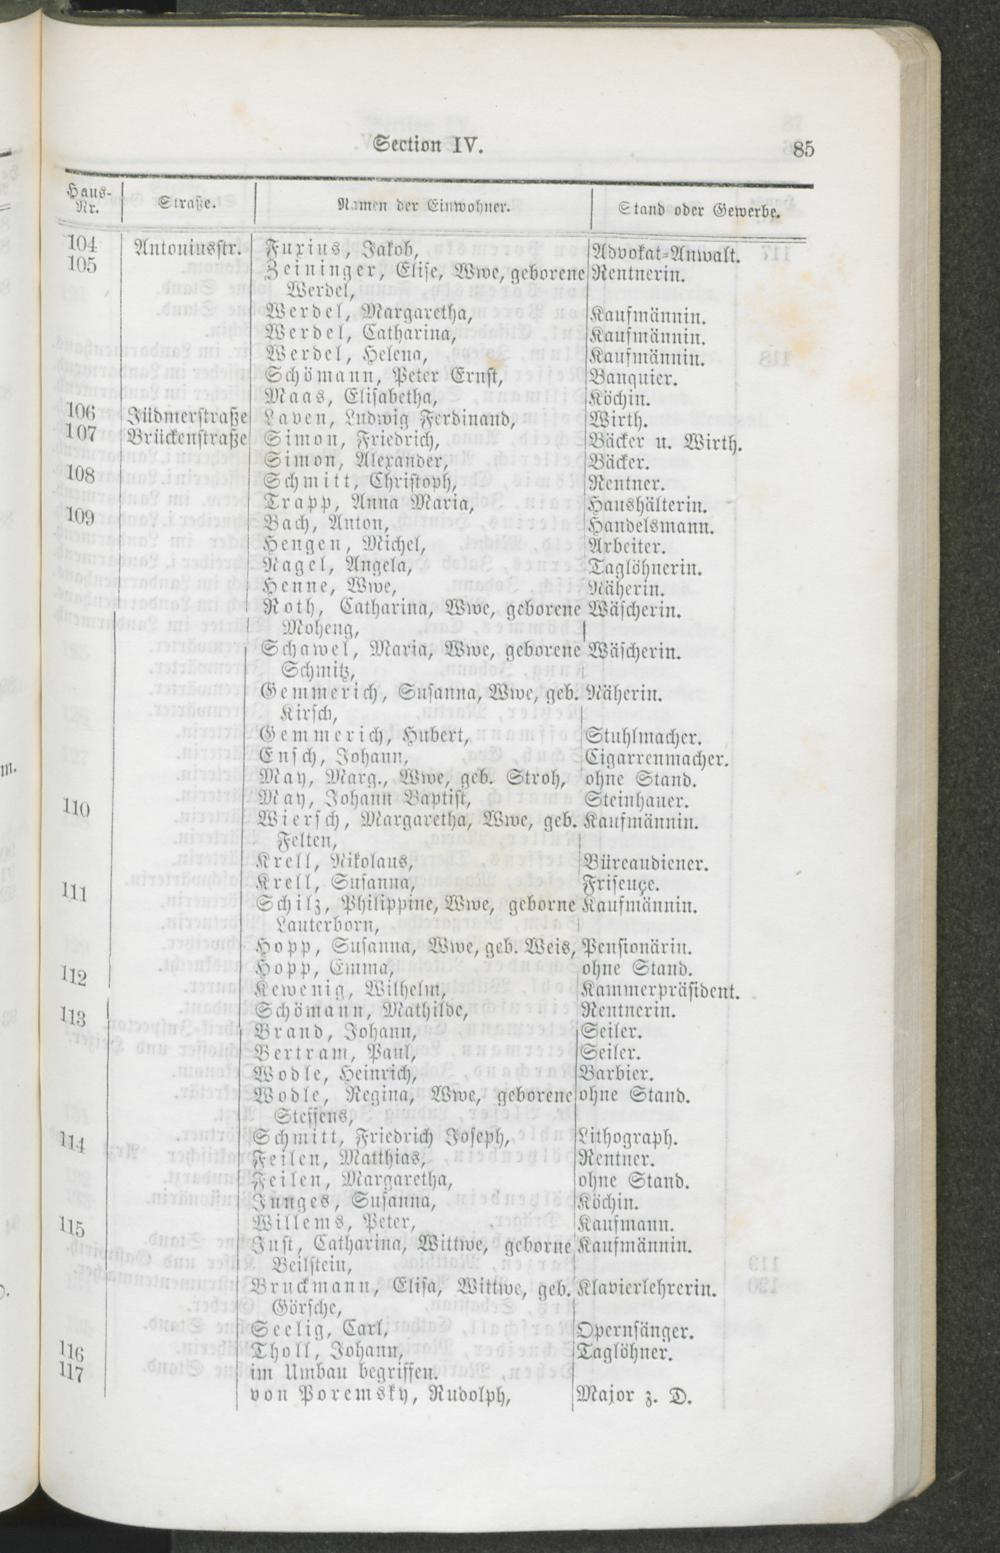 Section IV.
85
Haus-Nr. Straße. Namen der Einwohner. Stand oder Gewerbe.
104 Antoniusstr. Fuxius, Jakob, Advokat-Anwalt.
105 Zeininger, Elise, Wwe, geborene Rentnerin.
Werdel,
Werdel, Margaretha, Kaufmännin.
Werdel, Catharina, Kaufmännin.
Werdel, Helena, Kaufmännin.
Schömann, Peter Ernst, Banquier.
Maas, Elisabetha, Köchin.
106 Jüdmerstraße Laven, Ludwig Ferdinand, Wirth.
107 Brückenstraße Simon, Friedrich, Bäcker u. Wirth.
Simon, Alexander, Bäcker.
108 Schmitt, Christoph, Rentner.
Trapp, Anna Maria, Haushälterin.
109 Bach, Anton, Handelsmann.
Hengen, Michel, Arbeiter.
Nagel, Angela, Taglöhnerin.
Henne, Wwe, Näherin.
Roth, Catharina, Wwe, geborene Wäscherin.
Moheng,
Schawel, Maria, Wwe, geborene Wäscherin.
Schmitz,
Gemmerich, Susanna, Wwe, geb. Näherin.
Kirsch,
Gemmerich, Hubert, Stuhlmacher.
Ensch, Johann, Cigarrenmacher.
May, Marg., Wwe, geb. Stroh, ohne Stand.
May, Johann Baptist, Steinhauer.
110 Wiersch, Margaretha, Wwe, geb. Kaufmännin.
Felten,
Krell, Nikolaus, Büreaudiener.
Krell, Susanna, Friseuse.
111 Schilz, Philippine, Wwe, geborne Kaufmännin.
Lauterborn,
Hopp, Susanna, Wwe, geb. Weis, Pensionärin.
Hopp, Emma, ohne Stand.
112 Kewenig, Wilhelm, Kammerpräsident.
Schömann, Mathilde, Rentnerin.
113 Brand, Johann, Seiler.
Bertram, Paul, Seiler.
Wodle, Heinrich, Barbier.
Wodle, Regina, Wwe, geborene ohne Stand.
Steffens,
Schmitt, Friedrich Joseph, Lithograph.
114 Feilen, Matthias, Rentner.
Feilen, Margaretha, ohne Stand.
Junges, Susanna, Köchin.
Willems, Peter, Kaufmann.
115 Just, Catharina, Wittwe, geborne Kaufmännin.
Beilstein,
Bruckmann, Elisa, Wittwe, geb. Klavierlehrerin.
Görsche,
Seelig, Carl, Opernsänger.
Tholl, Johann, Taglöhner.
116 im Umbau begriffen.
117 von Poremsky, Rudolph, Major z. D.